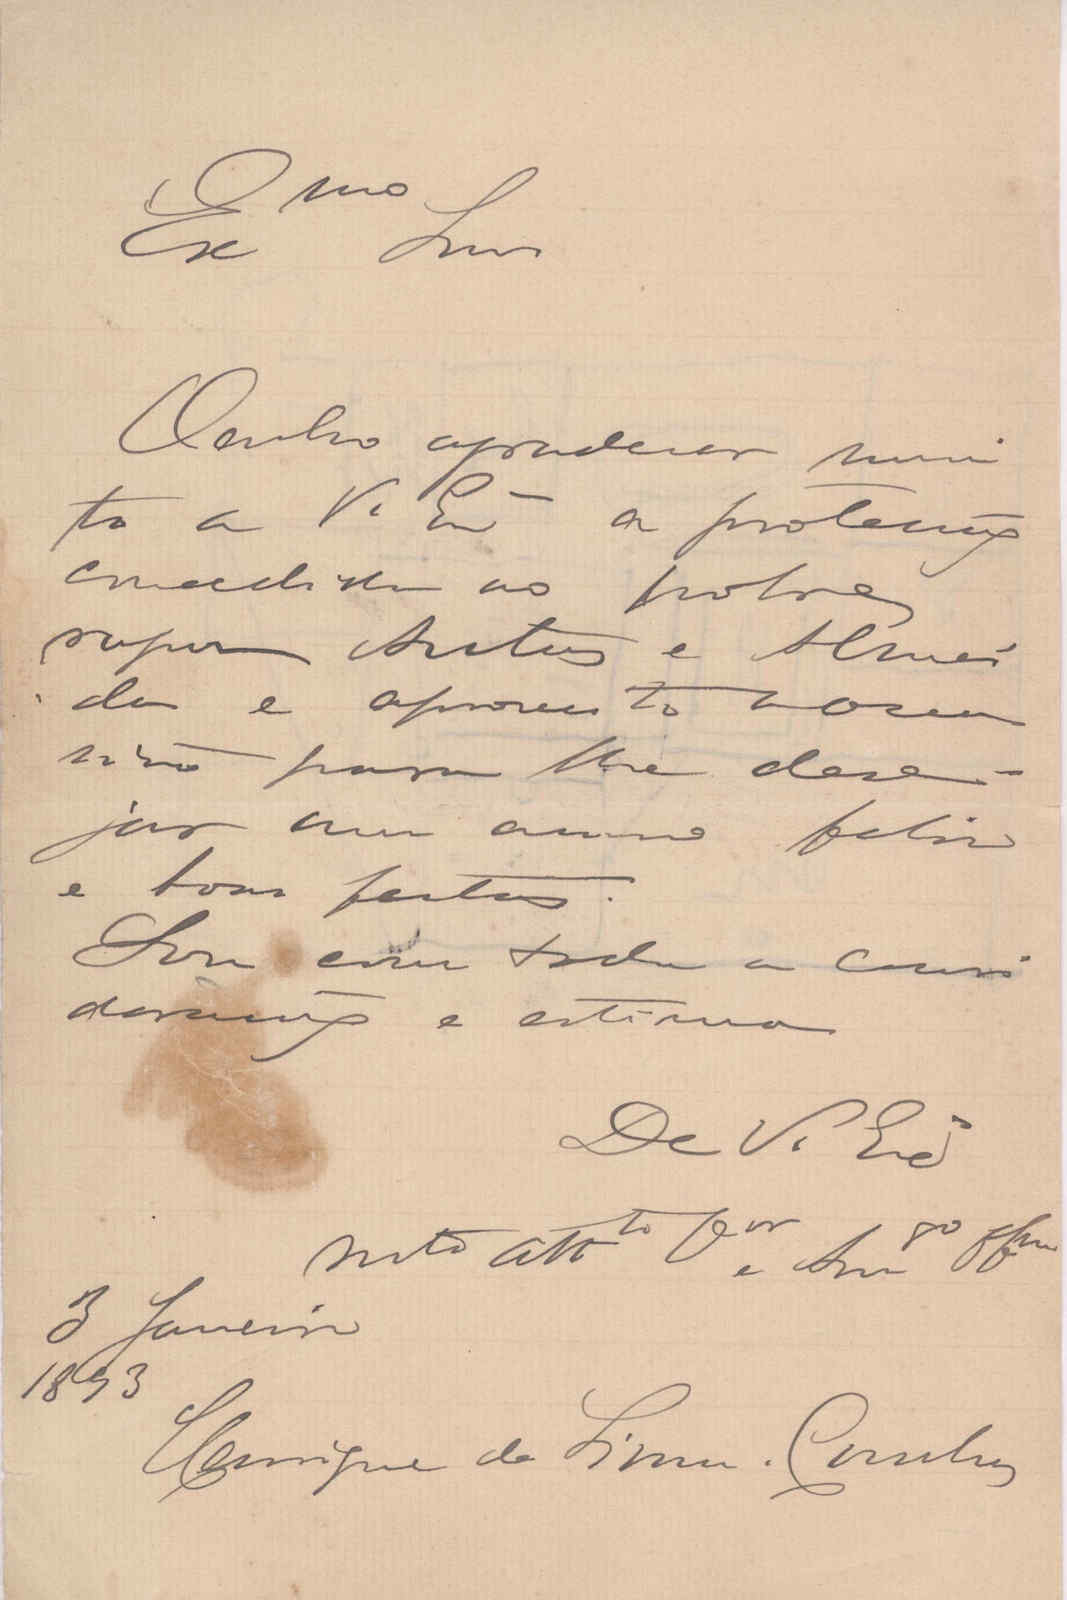 Exmo Snr
Venho agradecer mui
to a V. Exa a protecção
concedida ao pobre
rapaz Santos e Almei
da e aproveito a occa
sião para lhe dese-
jar um anno feliz
e boas festas.
Sou com toda a consi
deração e estima
De V. Exa
Mto Attto Vor e
3 Janeiro
1893
Henrique de Lima e Cunha